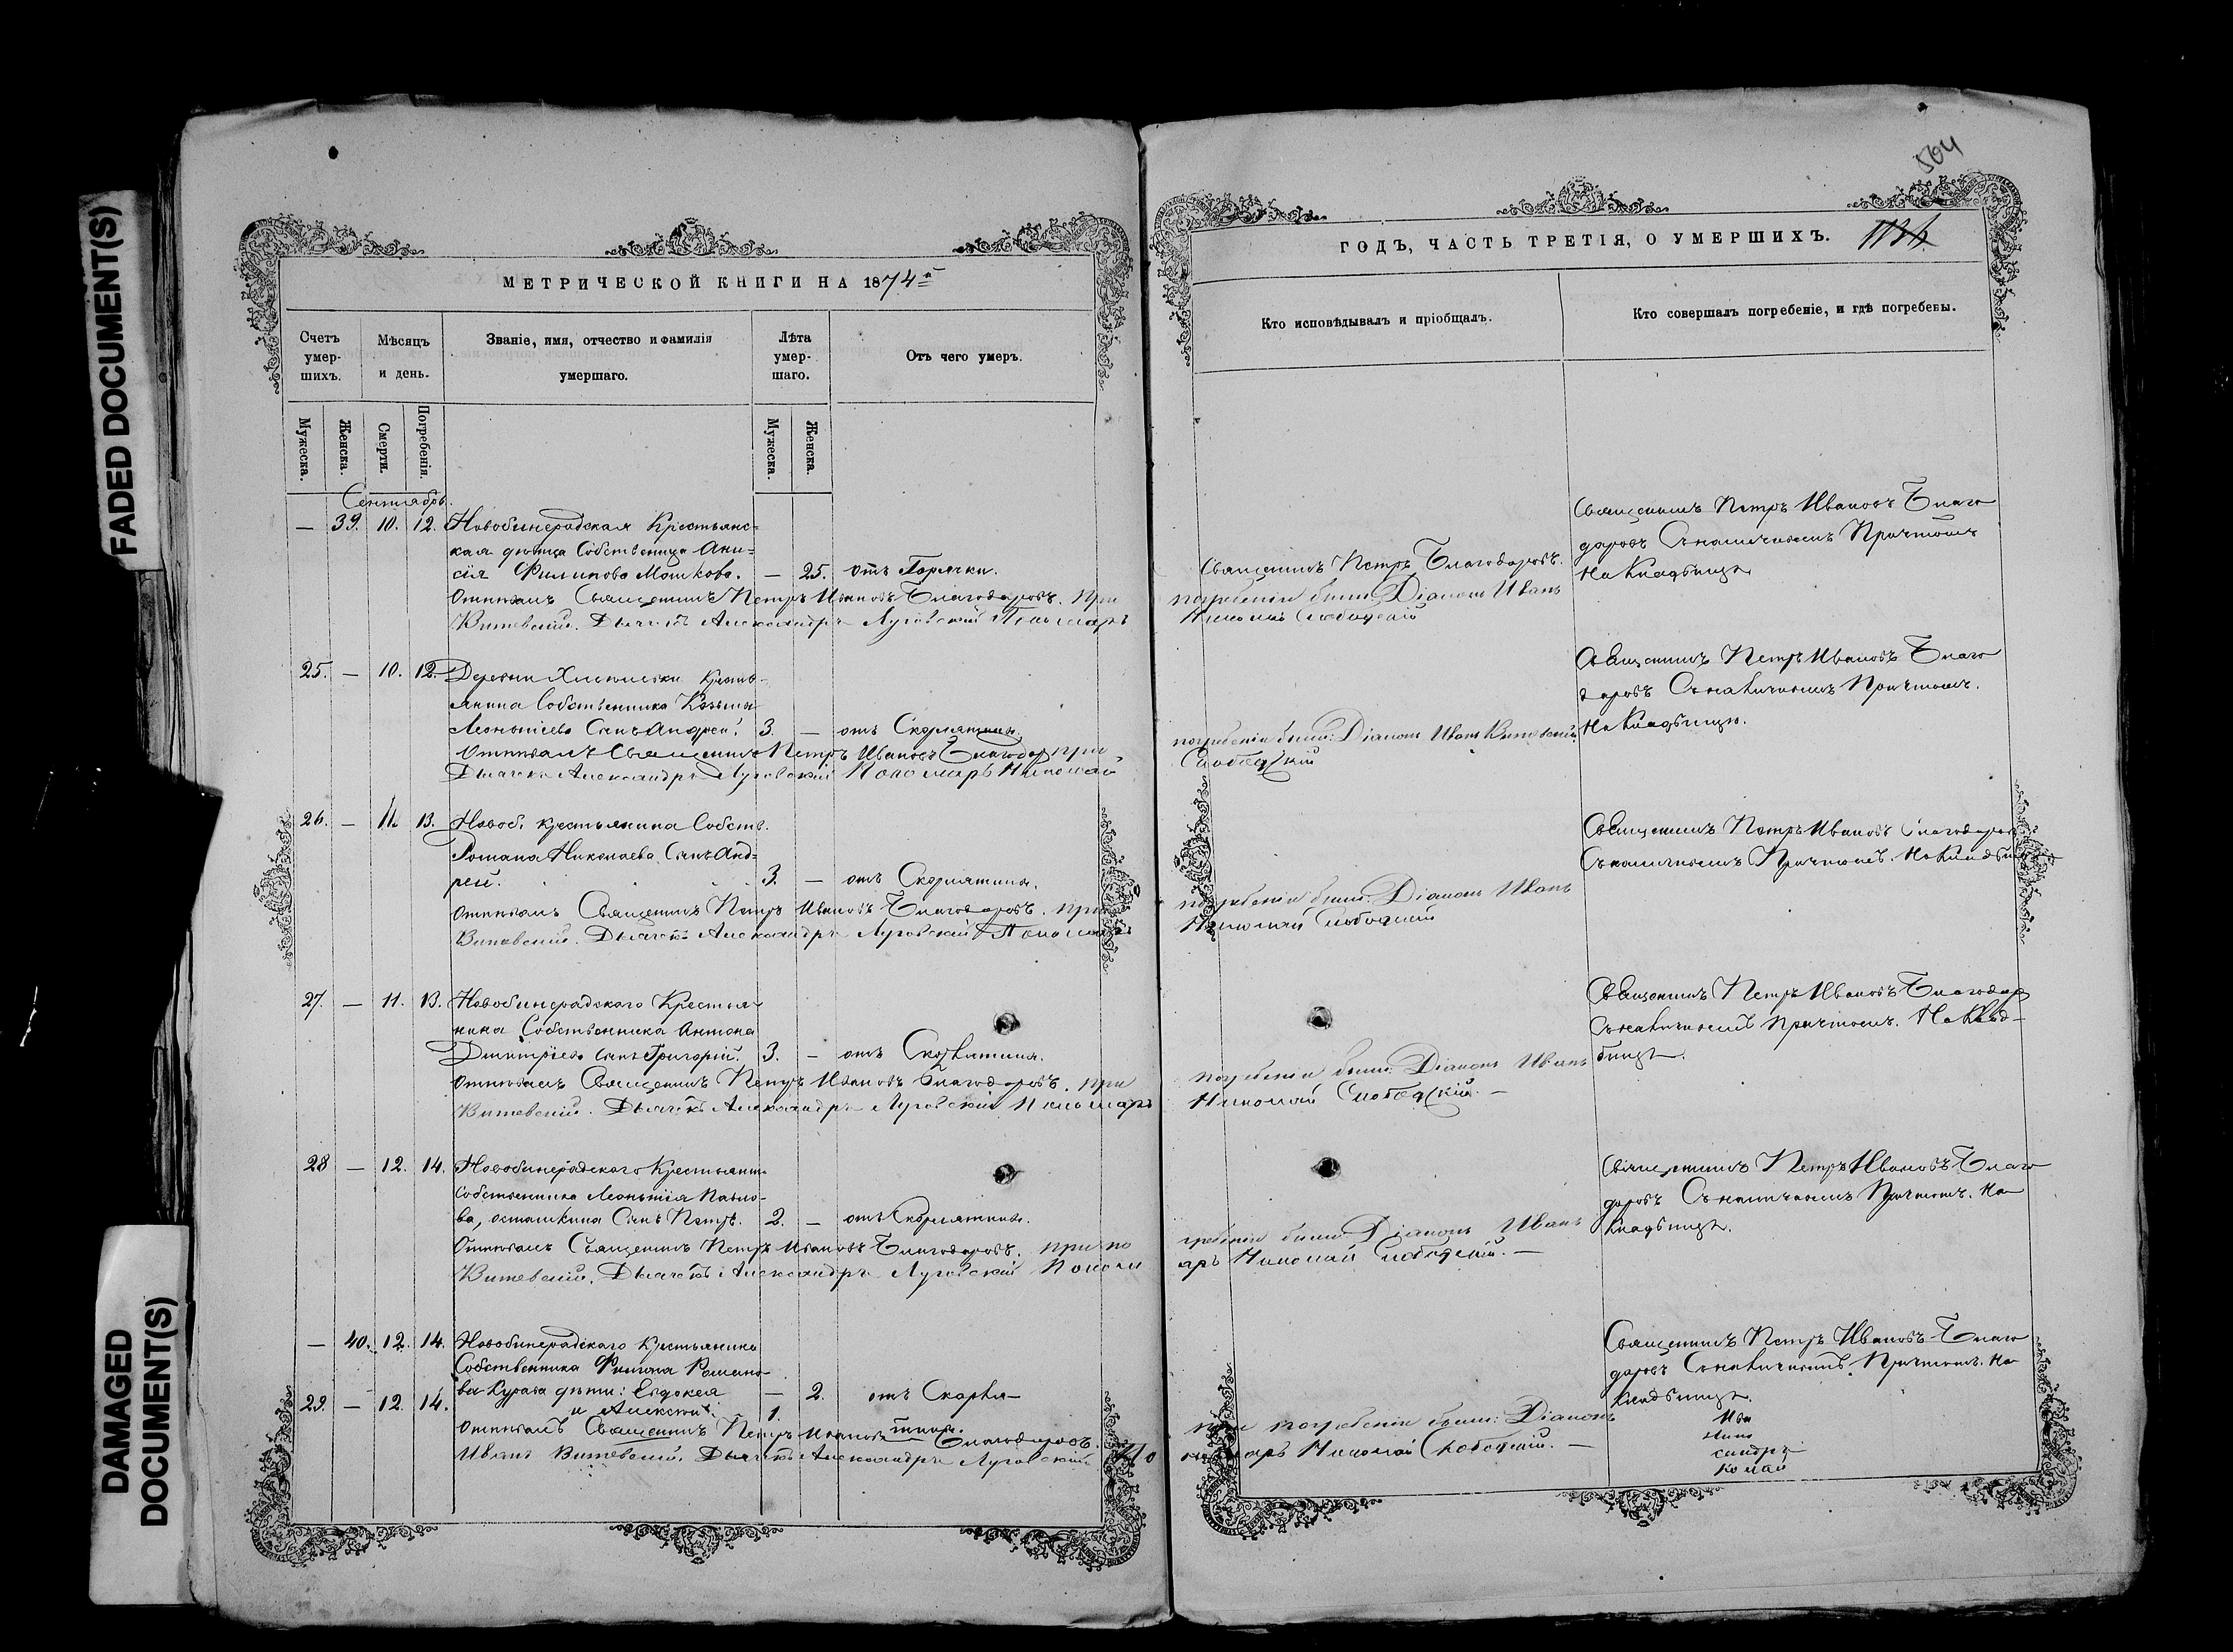 FADED DOCUMENT(S)
DAMAGED
DOCUMENT(S)
МЕТРИЧЕСКОЙ КНИГИ НА 1874й
Счетъ умер-шихъ.
Мѣсяцъ и день.
Званіе, имя, отчество и фамилія умершаго.
Лѣта умер-шаго.
Отъ чего умеръ.
Мужеска.
Женска.
Смерти.
Погребенія.
Мужеска.
Женска.
Сентябрь.
— 39. 10. 12. Новобинарадская Крестьянс=
кая дѣвица Собственица Ани=
сія Филипова Машкова. — 25. отъ Горячки.
Отпѣвалъ Священникъ Петръ Ивановъ Благодаровъ. При
Витевскій. Дьячекъ Александръ Луговскій Пономарь
25. — 10. 12. Деревни Кресть-
янина Собственника Козьмы
Леонтіева Сынъ Андрей. 3. — отъ Скарлятины.
Отпѣвалъ Священникъ Петръ Ивановъ Благодар при
Дьячекъ Александръ Луговскій Пономарь Николай
26. — 11. 13. Новоб. крестьянина Собств.
Романа Николаева Сынъ Анд-
рей. 3. — отъ Скарлятины.
Отпѣвалъ Священникъ Петръ Ивановъ Благодаровъ. при
Витевскій. Дьячекъ Александръ Луговскій Пономарь
27. — 11. 13. Новобинарадскаго Крестья-
нина Собственника Антона
Дмитріева сынъ Григорій. 3. — отъ Скарлятины.
Отпѣвалъ Священникъ Петръ Ивановъ Благодаровъ. при
Витевскій. Дьячекъ Александръ Луговскій Пономарь
28 — 12. 14. Новобинарадскаго Крестьянин.
Собственника Леонтія Павло-
ва, осташкина Сынъ Петръ. 2. — отъ Скарлятины.
Отпѣвалъ Священникъ Петръ Ивановъ Благодаровъ. при по
Витевскій. Дьячекъ Александръ Луговскій Поном
— 40. 12. 14. Новобинарадскаго Крестьянина
Собственника Филипа Романо-
ва дѣти: Евдокея — 2. отъ Скарля-
29. — 12. 14. и Алексѣй. 1. тины.
Отпѣвалъ Священникъ Петръ Ивановъ Благодаровъ.
Иванъ Витевскій. Дьячекъ Александръ Луговскій По
504
ГОДЪ, ЧАСТЬ ТРЕТІЯ, О УМЕРШИХЪ.
Кто исповѣдывалъ и пріобщалъ.
Кто совершалъ погребеніе, и гдѣ погребены.
Священникъ Петръ Благодаровъ.
погребеніи были: Діаконъ Иванъ
Николай Слободскій
Священникъ Петръ Ивановъ Благо
даровъ Съ наличнымъ Причтомъ
На Кладбищѣ
погребеніи были: Діаконъ Иванъ Витевскій.
Слободскій
Священникъ Петръ Ивановъ Благо
даровъ Съ наличнымъ Причтомъ.
На Кладбищѣ.
погребеніи были: Діаконъ Иванъ
Николай Слободскій
Священникъ Петръ Ивановъ Благодаровъ
Съ наличнымъ Причтомъ. На Кладбищѣ
погребеніи были: Діаконъ Иванъ
Николай Слободскій. —
Священникъ Петръ Ивановъ Благодар
Съ наличнымъ причтомъ. На Клад-
бищѣ.
гребеніи были Діаконъ Иванъ
арь Николай Слободскій. —
Священникъ Петръ Ивановъ Благо
даровъ Съ наличнымъ Причтомъ. На
Кладбищѣ.
при погребеніи были: Діаконъ
номарь Николай Слободскій. —
Священникъ Петръ Ивановъ Благо
даровъ Съ наличнымъ Причтомъ. На
Кладбищѣ.